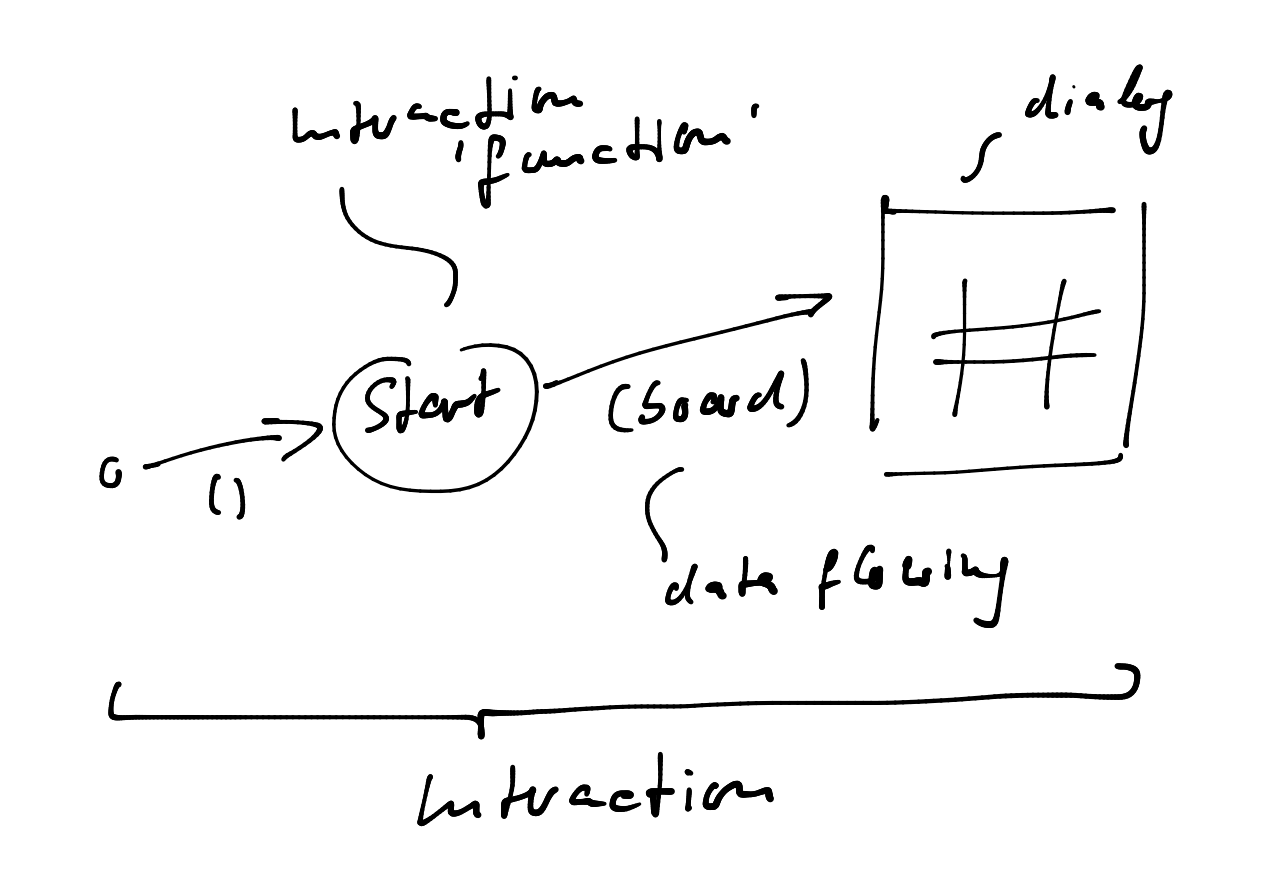 Interaction
'function'
dialog
Start
(board)
()
data flowing
Interaction